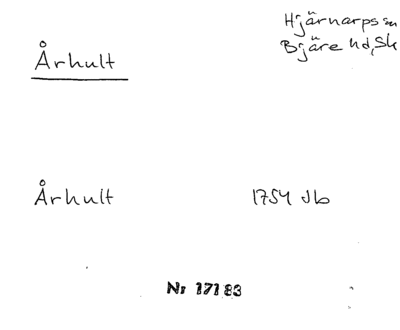 Hjärnarps sn
Århult
Bjäre hd, Sk
Århult 1754 Jb
Nr 17183